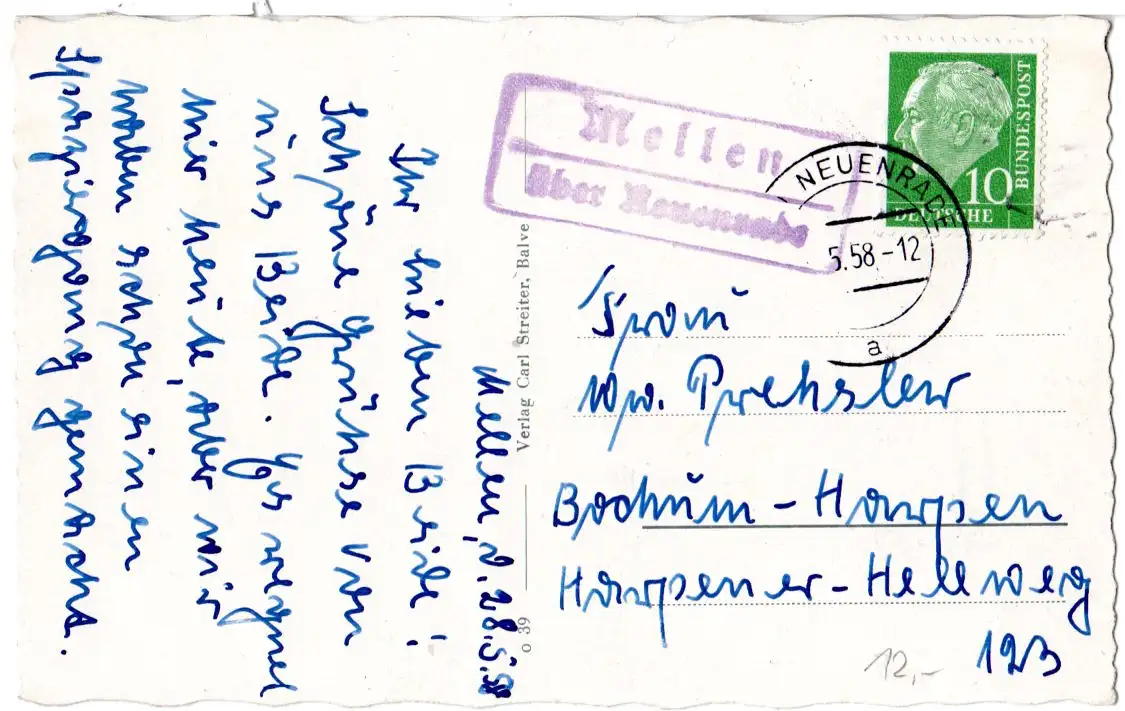 Mellen
über Neuenrade
NEUENRADE
5.58-12
a
BUNDESPOST
10
DEUTSCHE
Mellen, d. 28.5.58
Ihr lieben Beide!
Schöne Grüsse von
uns Beide. Es regnet
hier heute, aber wir
haben schon einen
Spaziergang gemacht.
Verlag Carl Streiter, Balve
o 39
Frau
Ww. Pressler
Bochum - Harpen
Harpener-Hellweg
123
12,-